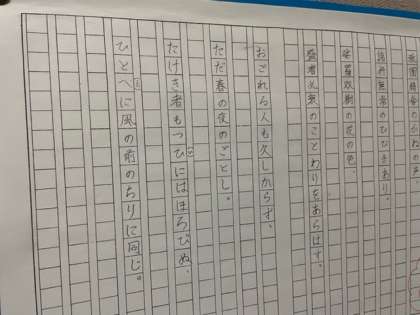 祇園精舎のかねの声、
諸行無常のひびきあり。
娑羅双樹の花の色、
盛者必衰のことわりをあらはす。
おごれる人も久しからず、
ただ春の夜のごとし。
たけき者もつひにはほろびぬ、
ひとへに風の前のちりに同じ。